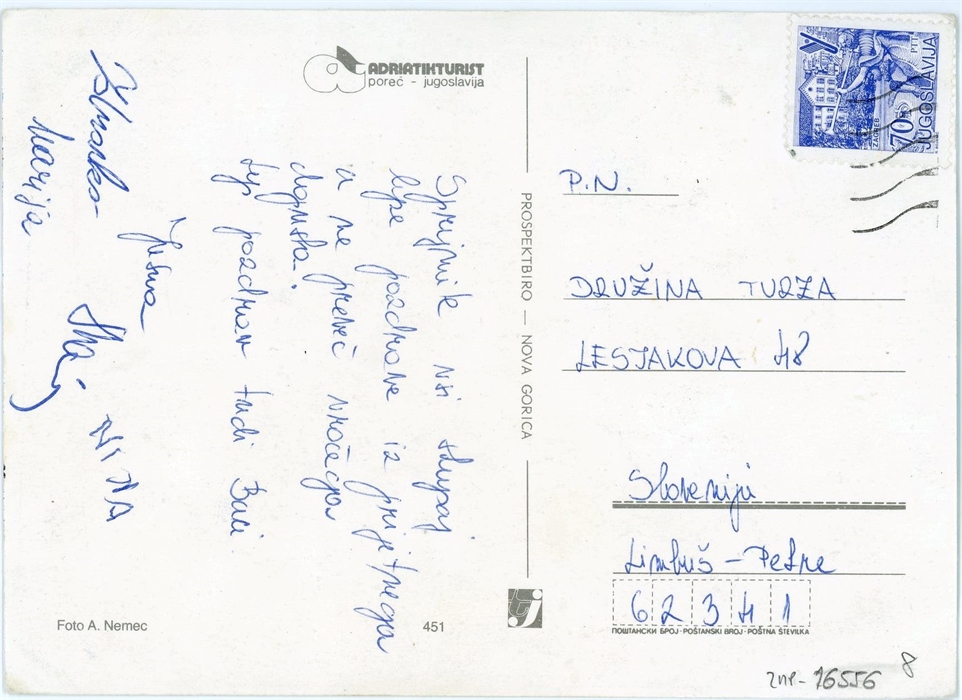 ADRIATIKTURIST
poreč - jugoslavija
Sprejmite vsi skupaj
lepe pozdrave iz prijetnega
a ne preveč vročega
dopusta.
Lep pozdrav tudi Baci
Marija
NINA
Foto A. Nemec
451
PROSPEKTBIRO — NOVA GORICA
70
ZAGREB
PTT
JUGOSLAVIJA
P.N.
DRUŽINA TURZA
LESJAKOVA 48
Slovenija
Limbuš - Pekre
62341
ПОШТАНСКИ БРОЈ · POŠTANSKI BROJ · POŠTNA ŠTEVILKA
ZNP - 16556
8